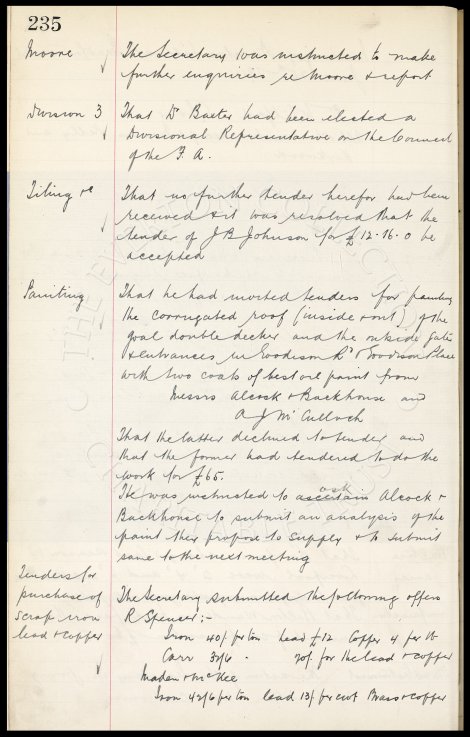 235
Moore The Secretary was instructed to make
further enquiries re Moore & report
Division 3 That Dr Baxter had been elected a
Divisional Representative on the Council
of the F. A.
Tiling re That no further tender herefor had been
received & it was resolved that the
tender of J B Johnson for £12.16.0 be
accepted
Painting That he had invited tenders for painting
the corrugated roof (inside & out) of the
goal double decker and the outside gates
& entrances in Goodison Rd & Goodison Place
with two coats of best oil paint from
Messrs Alcock & Backhouse and
A J McCulloch
That the latter declined to tender and
that the former had tendered to do the
work for £65.
He was instructed to ascertain ask Alcock &
Backhouse to submit an analysis of the
paint they propose to supply & to submit
same to the next meeting
Tenders for
purchase of
scrap iron
lead & copper
The Secretary submitted the following offers
R Spencer:-
Iron 40/- per ton lead £12 Copper 4 per lb
Carr 32/6 . 20/- for the lead & copper
Maden & McKee
Iron 42/6 per ton lead 13/- per cwt Brass & Copper